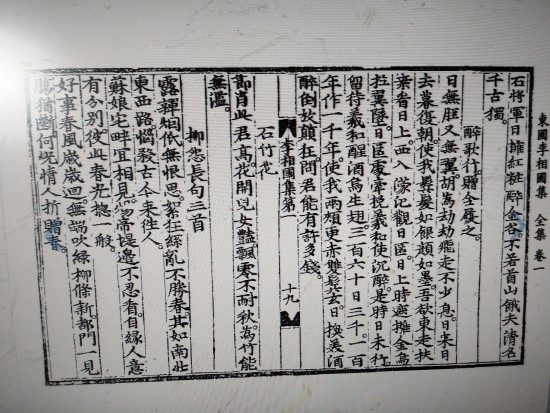 東國李相國集 全集 卷一
石將軍日擁紅粧醉金谷。不若首山餓夫清名
千古獨。
醉歌行。贈全履之
日無脛又無翼。胡爲劫劫飛走不少息。日來日
去暮復朝。使我鬒髮如銀顔如墨。吾欲東走扶
桑看日上。西入濛汜觀日匿。日上時遮擁金烏
拉翼墜。日匿處牽挽羲和使沉醉。是時日未行
留待羲和醒酒烏生翅。三百六十日三千一百
年作一千年。使我兩頰更赤雙鬢玄。日換美酒
醉倒放顛狂。問君能有許多錢。
李相國集第一 十九
石竹花
節肖此君高。花開兒女艷。飄零不耐秋。爲竹能
無濫。
柳怨長句三首
露嚲烟低無恨思。絮狂絲亂不勝春。其如南北
東西路。惱殺古今來往人。
蘇娘宅畔宜相見。煬帝堤邊不忍看。自緣人意
有分別。彼此春光摠一般。
好事春風歲歲迴。無端吹綠柳條新。都門一見
腸猶斷。何况情人折贈春。